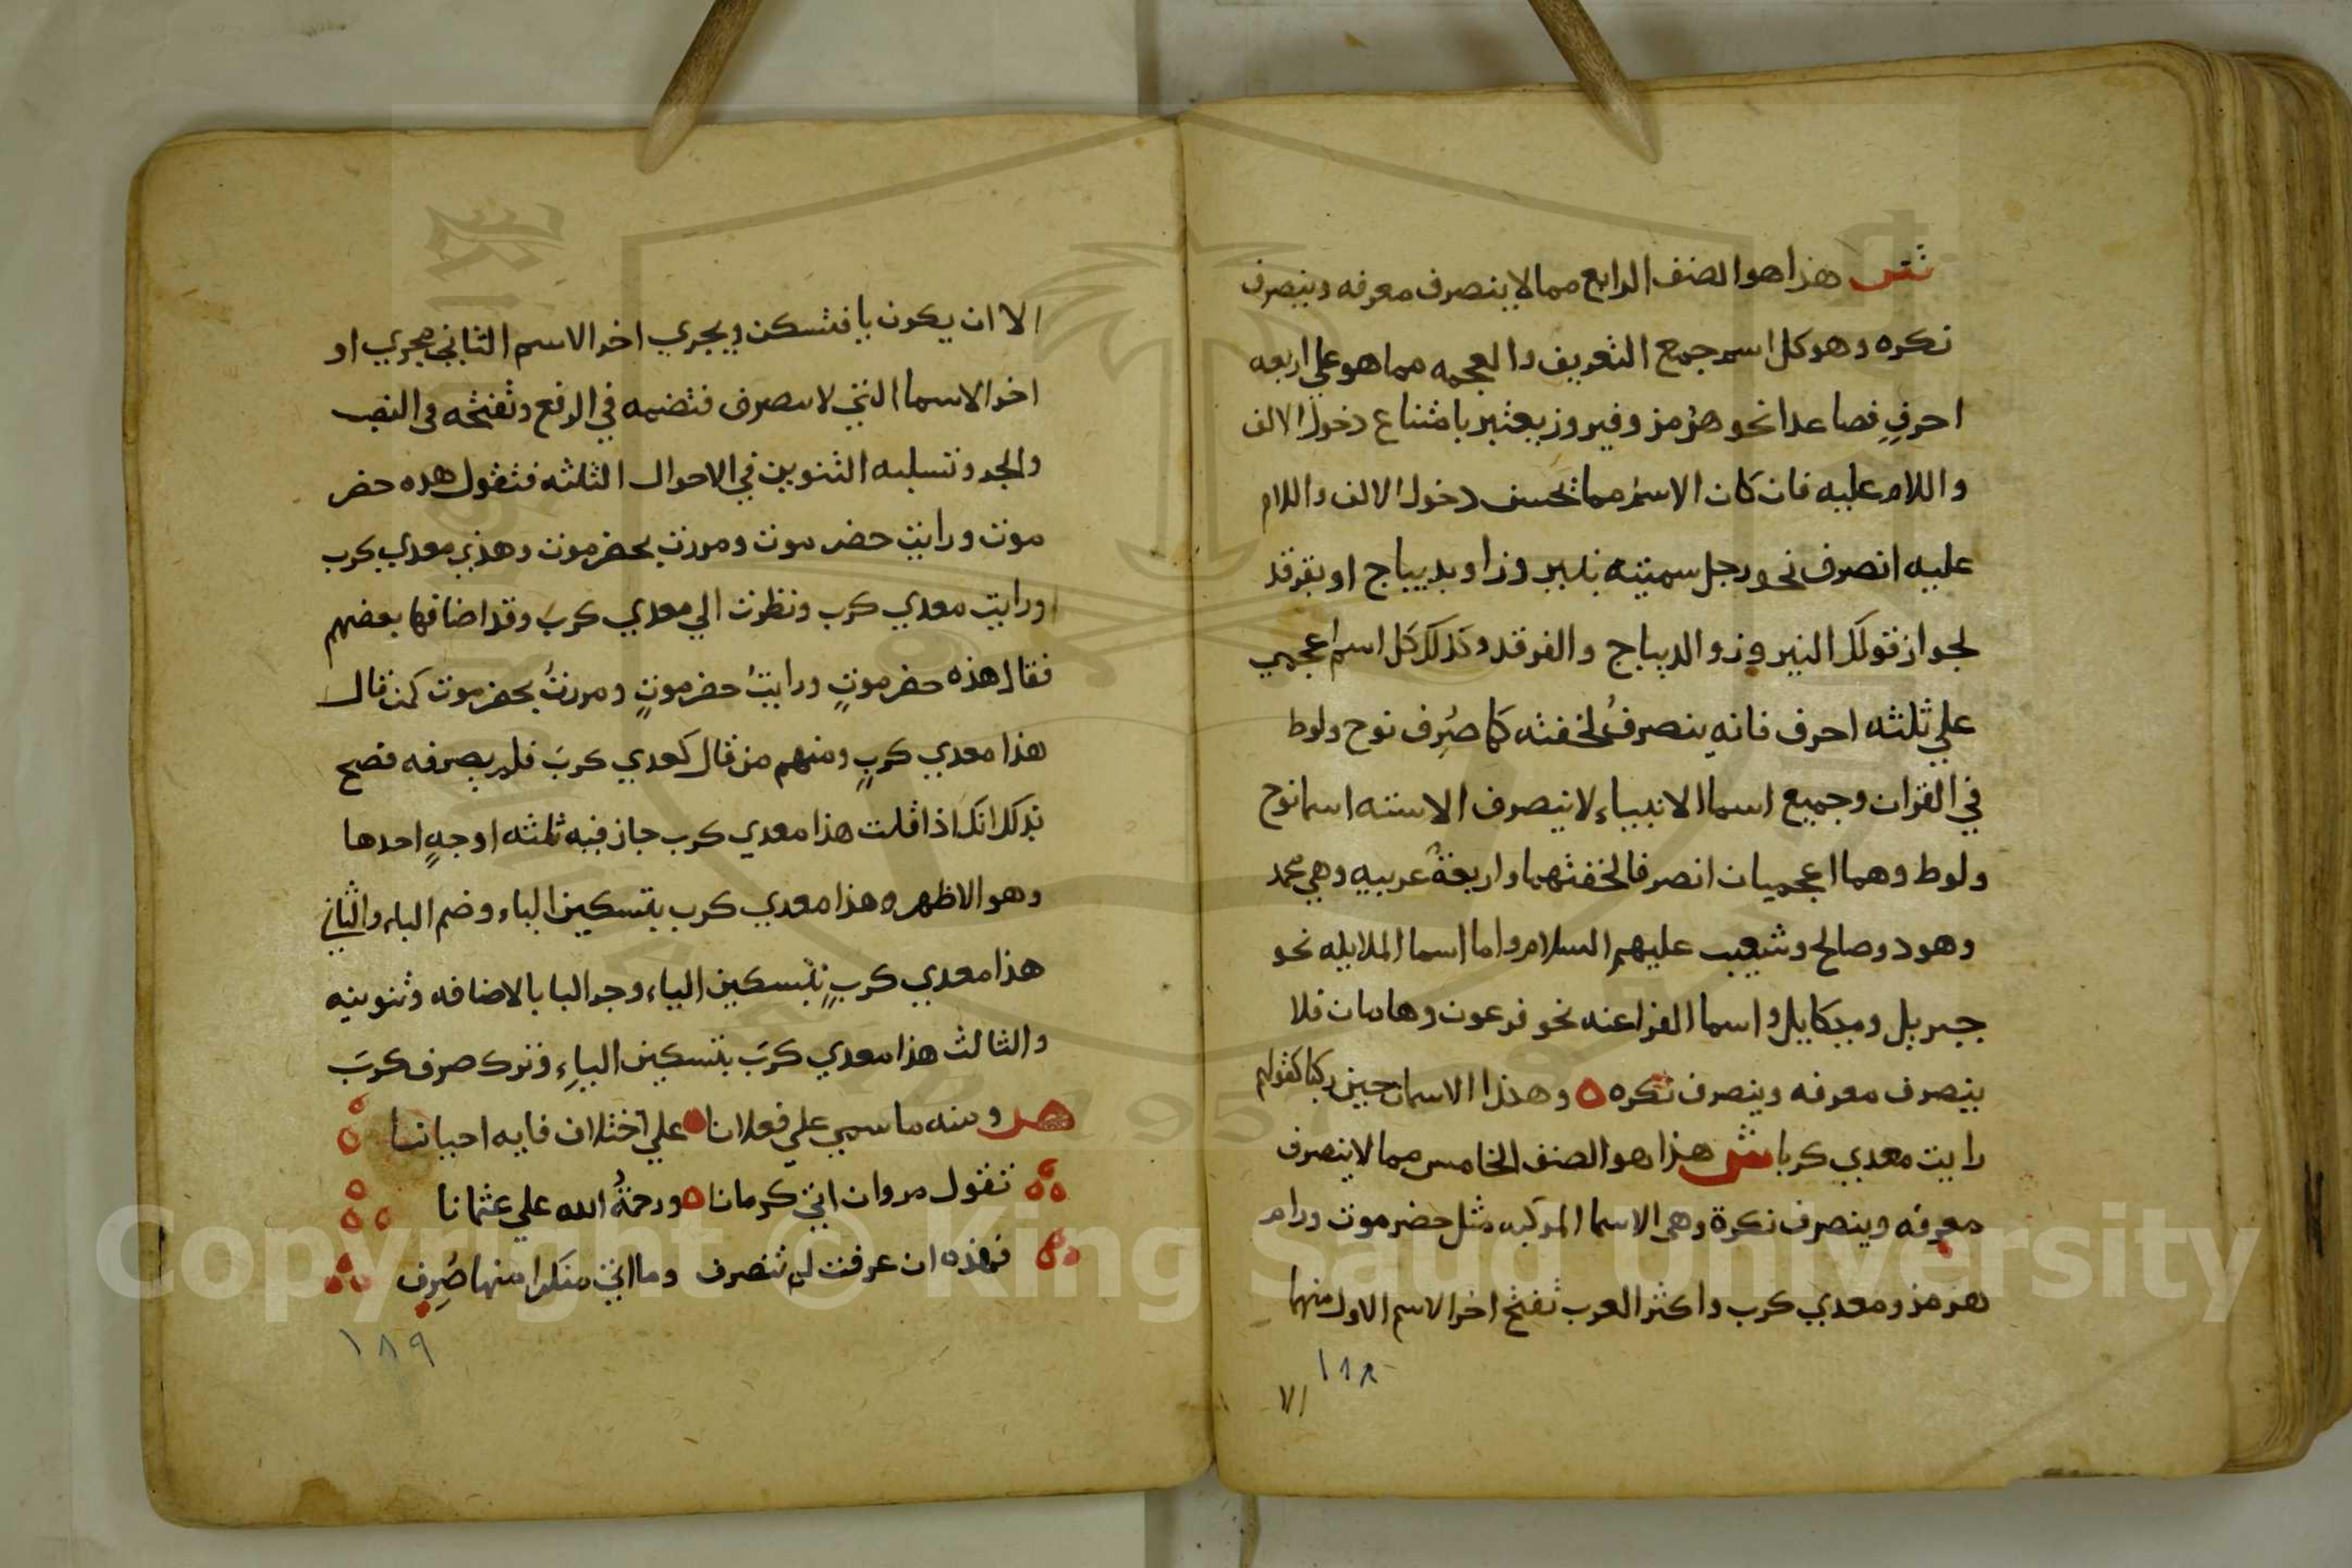 شش هذا هو الصنف الرابع مما لا ينصرف معرفه وينصرف
نكره وهو كل اسم جمع التعريف والعجمه مما هو علي اربعه
احرفٍ فصاعدا نحو هرمز وفيروز يعتبر بامتناع دخول الالف
واللام عليه فان كان الاسم مما تحسن دخول الالف واللام
عليه انصرف نحو رجل سميته بنيروز او بديباج او بفرقد
لجواز قولك النيروز والديباج والفرقد وكذلك كل اسم اعجمي
علي ثلثه احرف فانه ينصرفُ لخفته كما صُرِف نوح ولوط
في القران وجميع اسما الانبياء لا ينصرف الا سته اسما نوح
ولوط وهما اعجميان انصرفا لخفتهما واربعةٌ عربيه وهي محمد
وهود وصالح وشعيب عليهم السلام واما اسما الملايله نحو
جبريل وميكاييل واسما الفراعنه نحو فرعون وهامان فلا
ينصرف معرفه وينصرف نكره ه وهكذا الاسمان حين ركبا كقولهم
رايت معدي كربا شش هذا هو الصنف الخامس مما لا ينصرف
معرفه وينصرف نكرة وهي الاسما المركبه مثل حضرموت ورام
هرمز ومعدي كرب واكثر العرب تفتح اخر الاسم الاول منهما
١٨٨
الا
الا ان يكون يا فتسكن ويجري اخر الاسم الثاني مجري او
اخر الاسما التي لا ينصرف فتضمه في الرفع وتفتحه في النصب
والجر وتسلبه التنوين في الاحوال الثلثه فتقول هذه حضر
موت ورايت حضر موت ومررت بحضرموت وهذي معدي كرب
ورايت معدي كرب ونظرت الي معدي كربَ وقد اضافها بعضهم
فقال هذه حضرموتٍ ورايتُ حضرموتٍ ومررتُ بحضرموت كمن قال
هذا معدي كربٍ ومنهم من قال كعدي كربَ فلم يصرفه فصح
بذلك انك اذا قلت هذا معدي كرب جاز فيه ثلثه اوجهٍ احدها
وهو الاظهر وهذا معدي كرب بتسكين الياء وضم الباء والثاني
هذا معدي كربٍ بتسكين الياء وجر البا بالاضافه وتنوينه
والثالث هذا معدي كربَ بتسكين الياءِ وترك صرف كربَ
هـ ومنه ما سمي علي فعلانا علي اختلاف فايه احيانا
تقول مروان اتي كرمانا ه ورحمةُ الله علي عثمانا
فهذه ان عرفت لم تنصرف وما اتي منكرا منها صُرِف
١٨٩
Copyright © King Saud University
1957